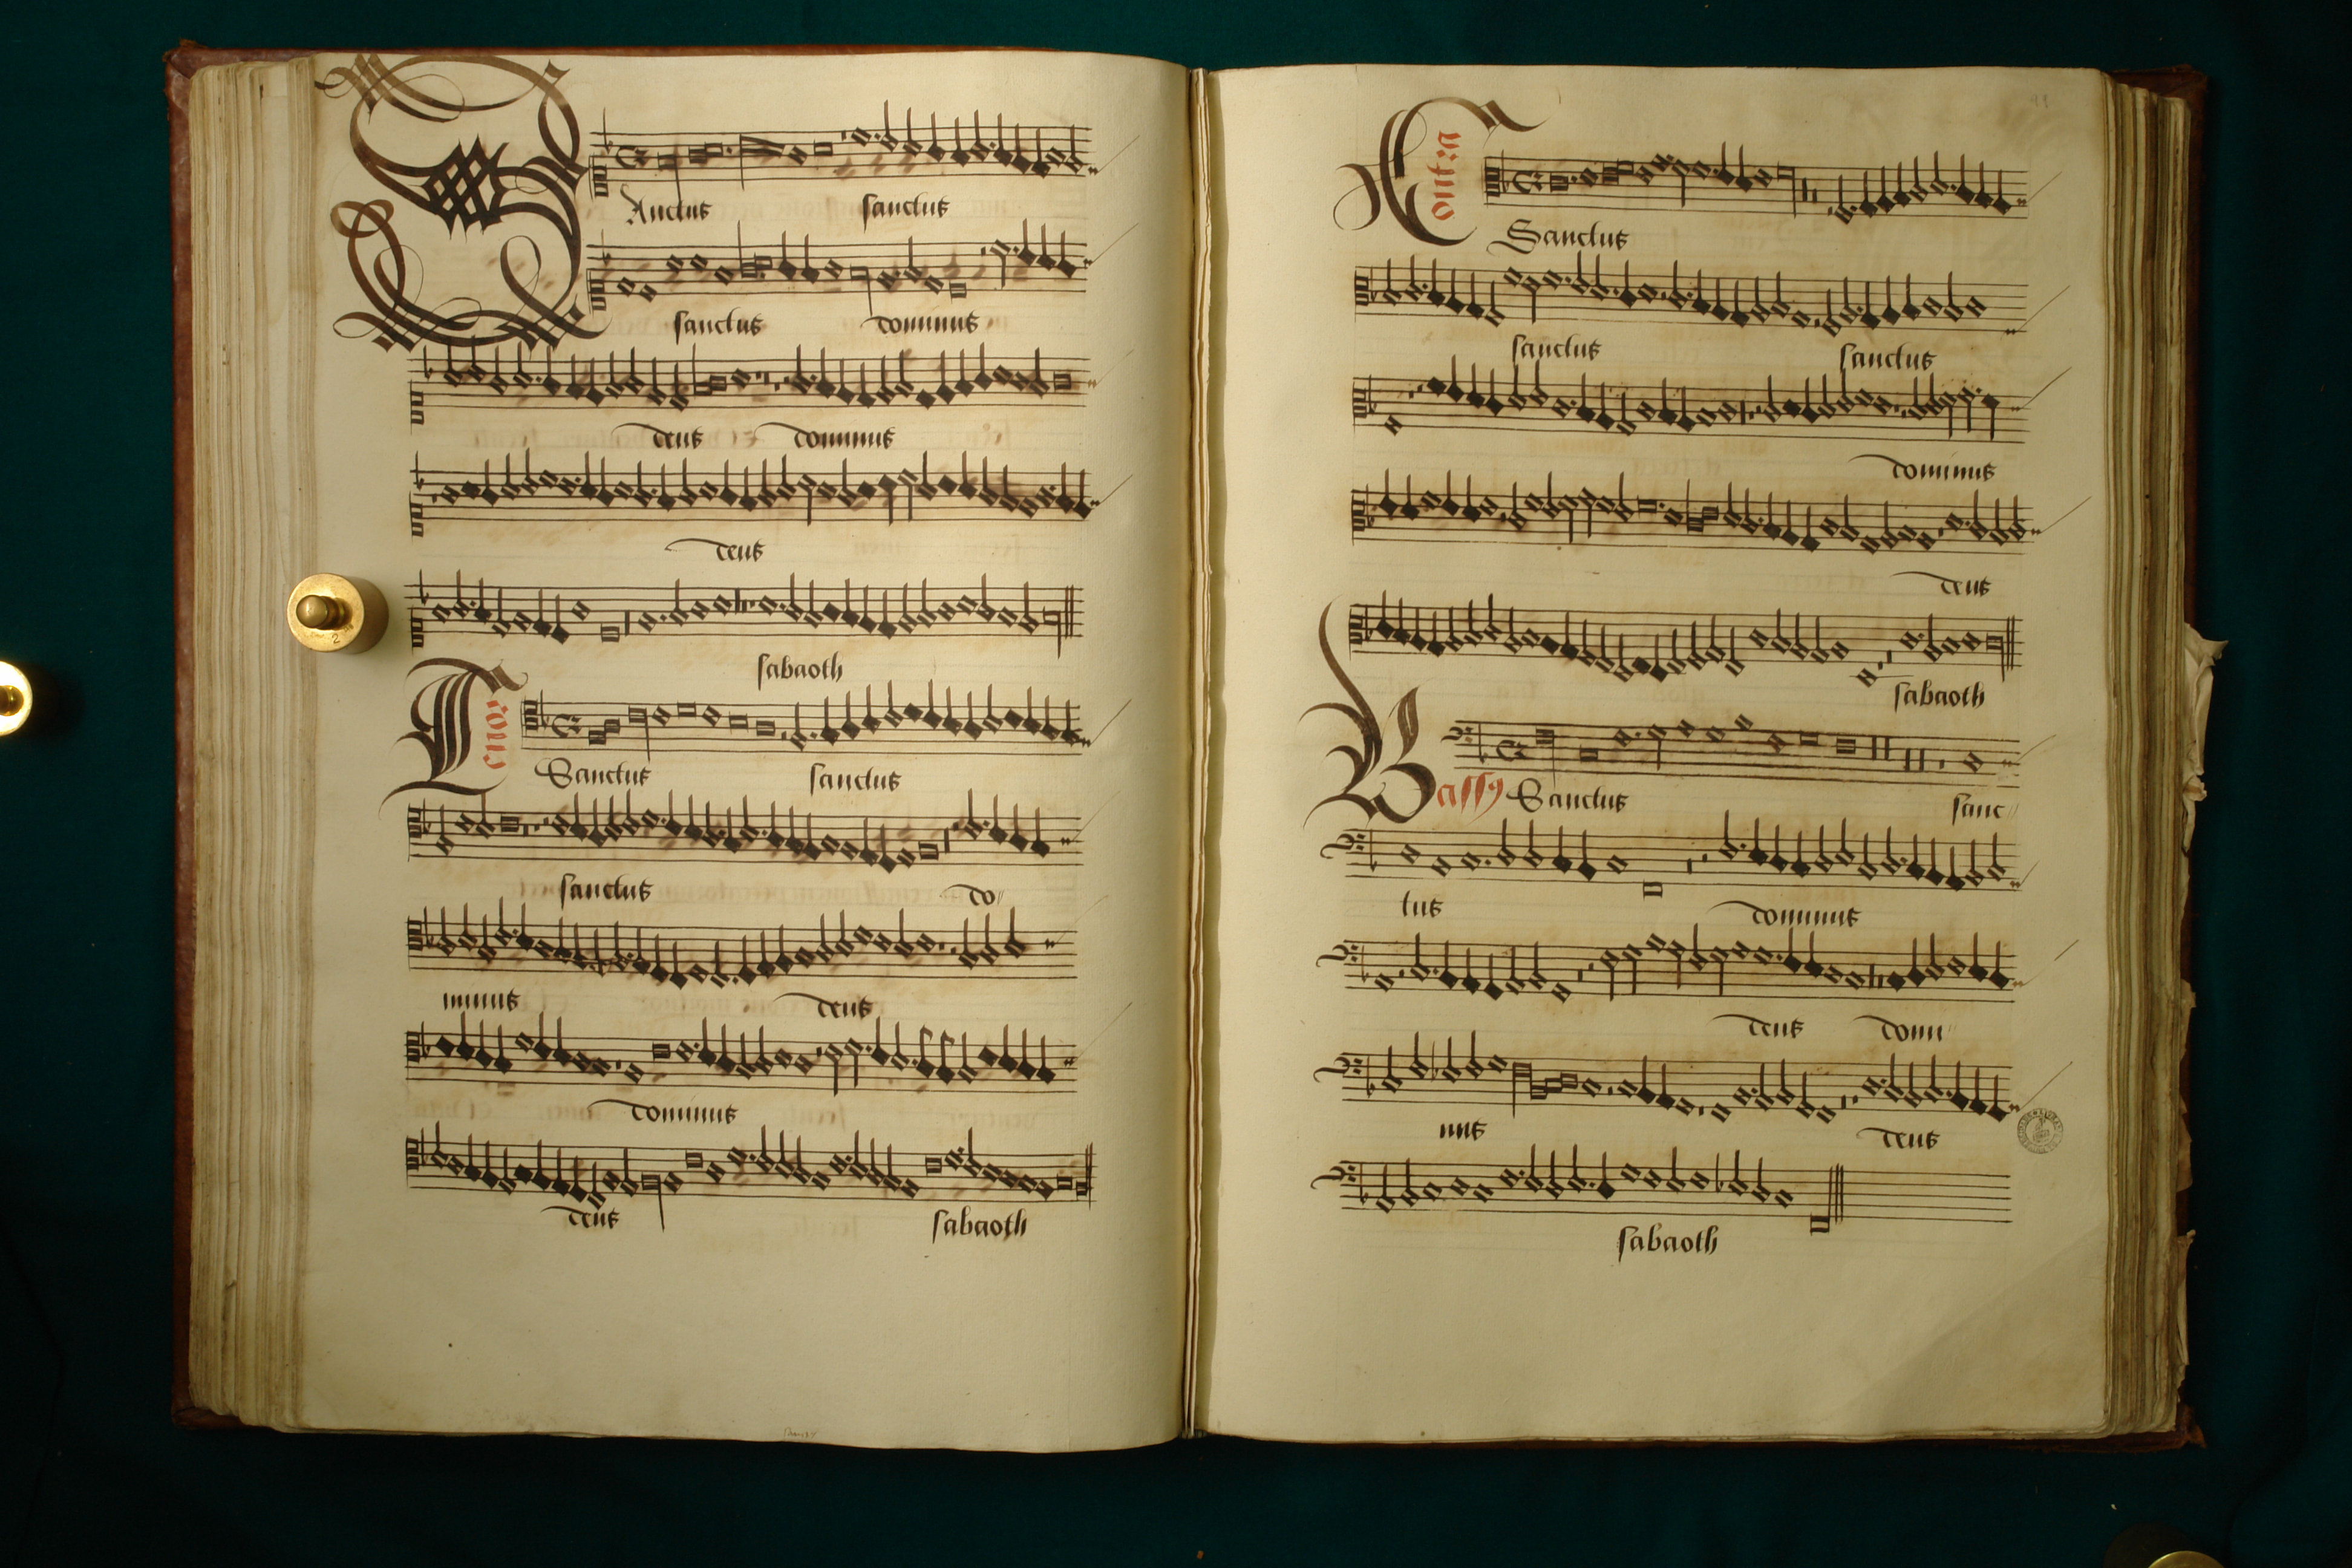 Sanctus sanctus
sanctus dominus
deus dominus
deus
sabaoth
Tenor
Sanctus sanctus
sanctus do
minus deus
dominus
deus sabaoth
Contra
Sanctus
sanctus sanctus
dominus
deus
sabaoth
Bassus Sanctus sanc
tus dominus
deus domi
nus deus
sabaoth